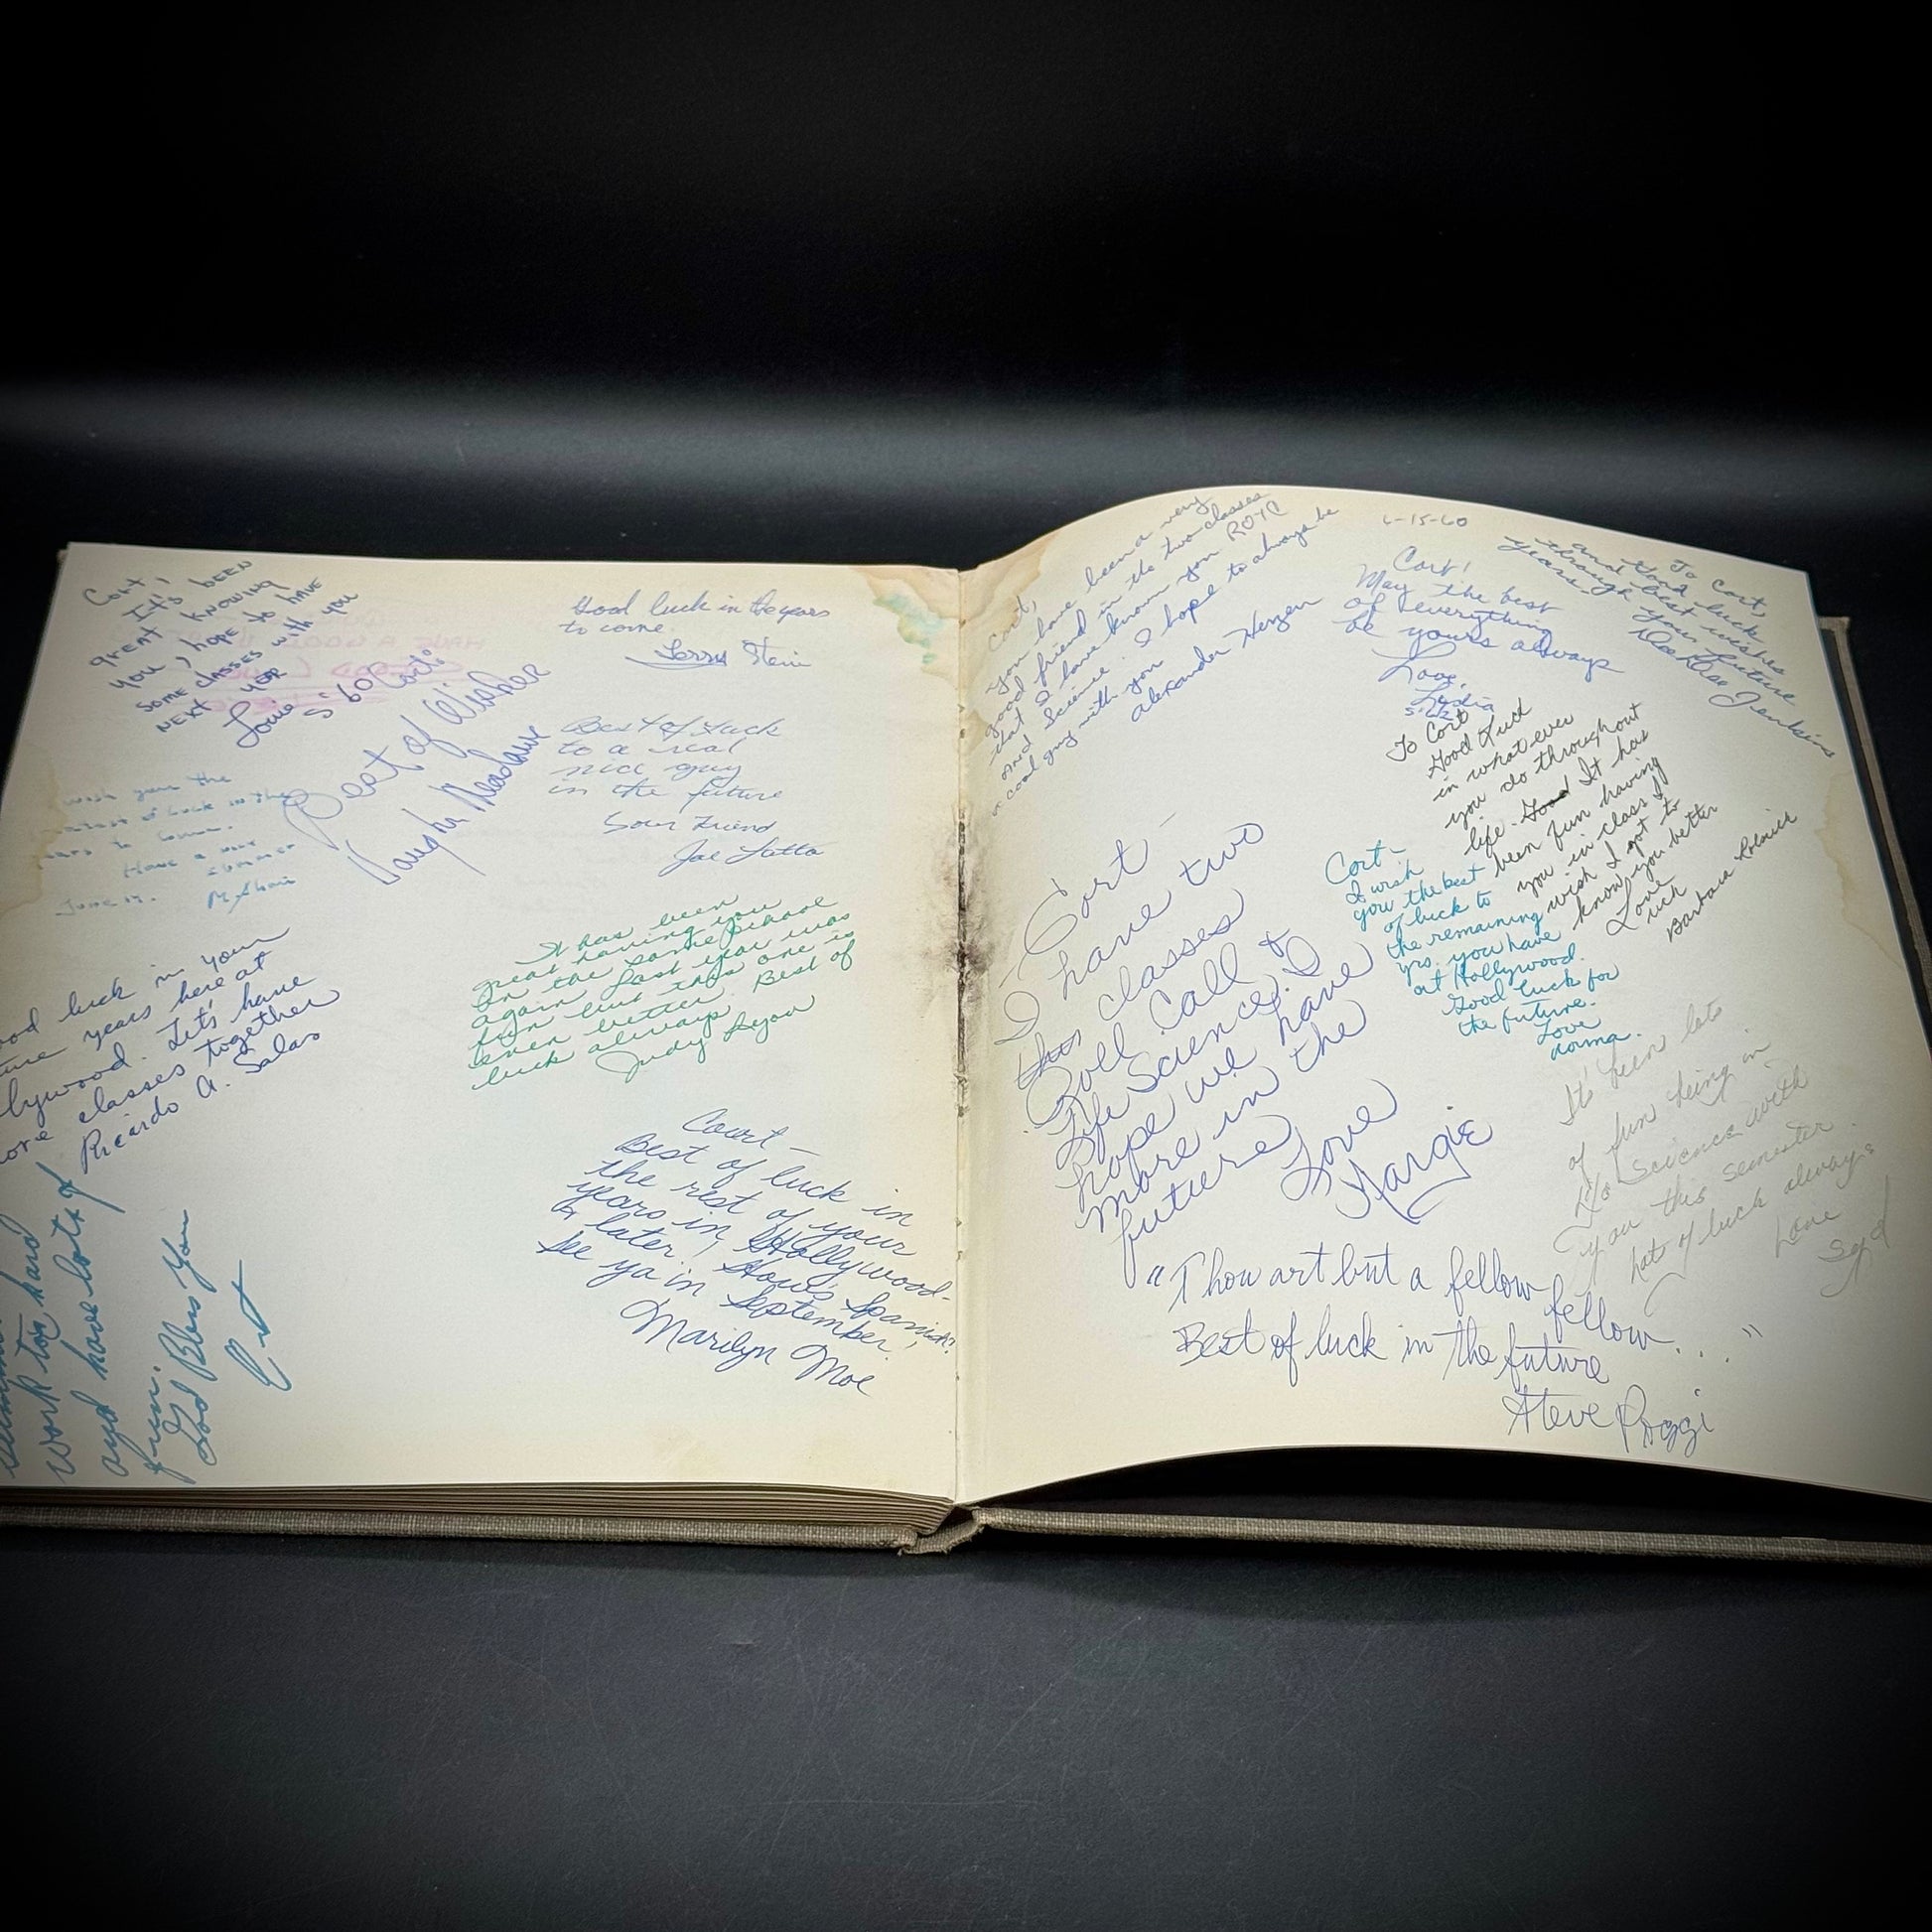 Cort,
It's been
great knowing
you, I hope to have
some classes with you
next year
Louie S'60
Cort:
Best of Wishes
Vaughn Meadows
Good luck in the years
to come.
Jerry Stein
Best of Luck
to a real
nice guy
in the future
Your Friend
Joe
wish you the
of luck in the
to come.
Have a nice
summer
June 17.
luck in your
years here at
Let's have
classes together
Ricardo A. Salas
It has been
great having you
in the same
again. Last year was
fun but this one is
even better. Best of
luck always
Judy
work too hard
and have lots of
fun.
God Bless You
Court—
Best of luck in
the rest of your
years in Hollywood-
& later! How's Spanish?
See ya in September!
Marilyn Moe
Cort,
You have been a very
good friend in the two classes
that I have known you ROTC
and Science. I hope to always be
a cool guy with you
Alexander
6-15-60
Cort!
May the best
of everything
be yours always
Love,
Lydia
S'62
To Cort,
and Good luck
and best wishes
through your future
years.
Jenkins
To Cort
Good Luck
in what ever
you do throughout
life. Good It has
been fun having
you in class I
wish I got to
know you better
Love
Barbara
Cort-
I wish
you the best
of luck to
the remaining
yrs. you have
at Hollywood.
Good luck for
the future.
Love
Norma.
Cort—
I have two
classes
Roll Call &
Life Science. I
hope we have
more in the
future
Love
Margie
It's been lots
of fun being in
Science with
you this semester.
lots of luck always
Love
Syd
"Thou art but a fellow
fellow. . . "
Best of luck in the future
Steve Poggi